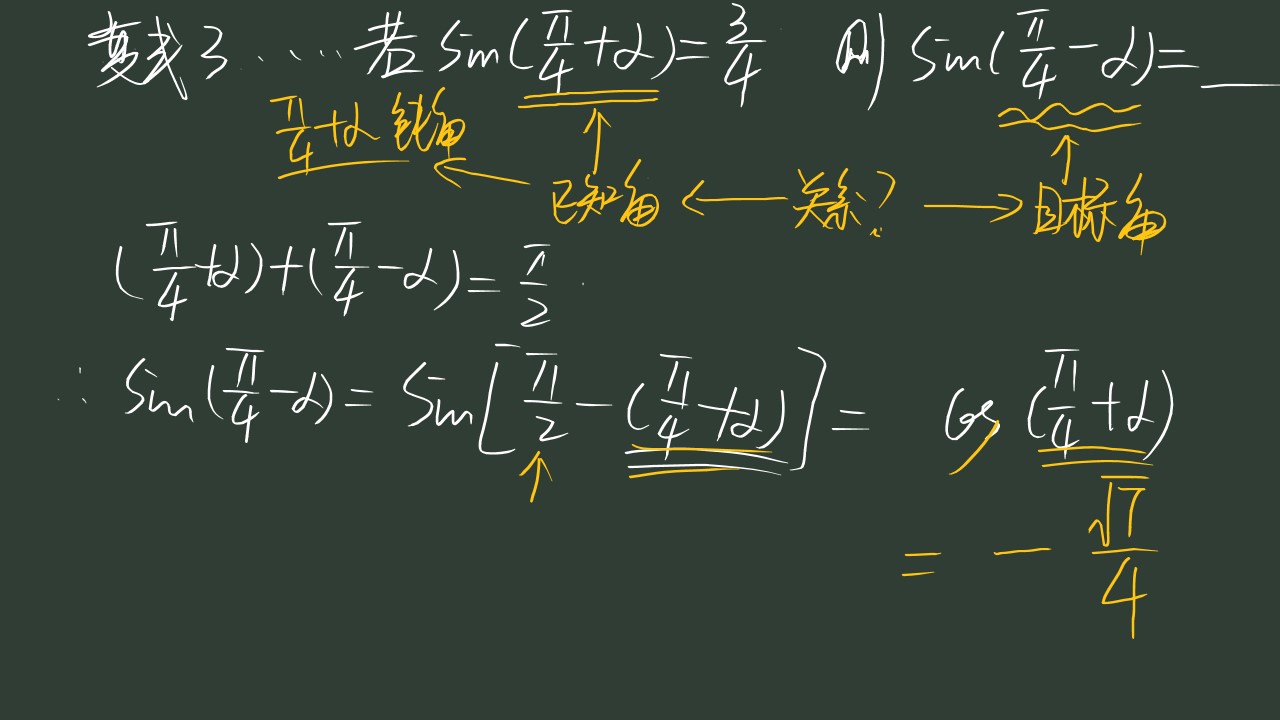 变式3 ...... 若 Sin(π/4+α)=3/4 则 Sin(π/4-α)=____
π/4+α 钝角
已知角 ← 关系? → 目标角
(π/4+α)+(π/4-α)=π/2
∴ Sin(π/4-α)= Sin[π/2-(π/4+α)]= cos(π/4+α)
= -√7/4